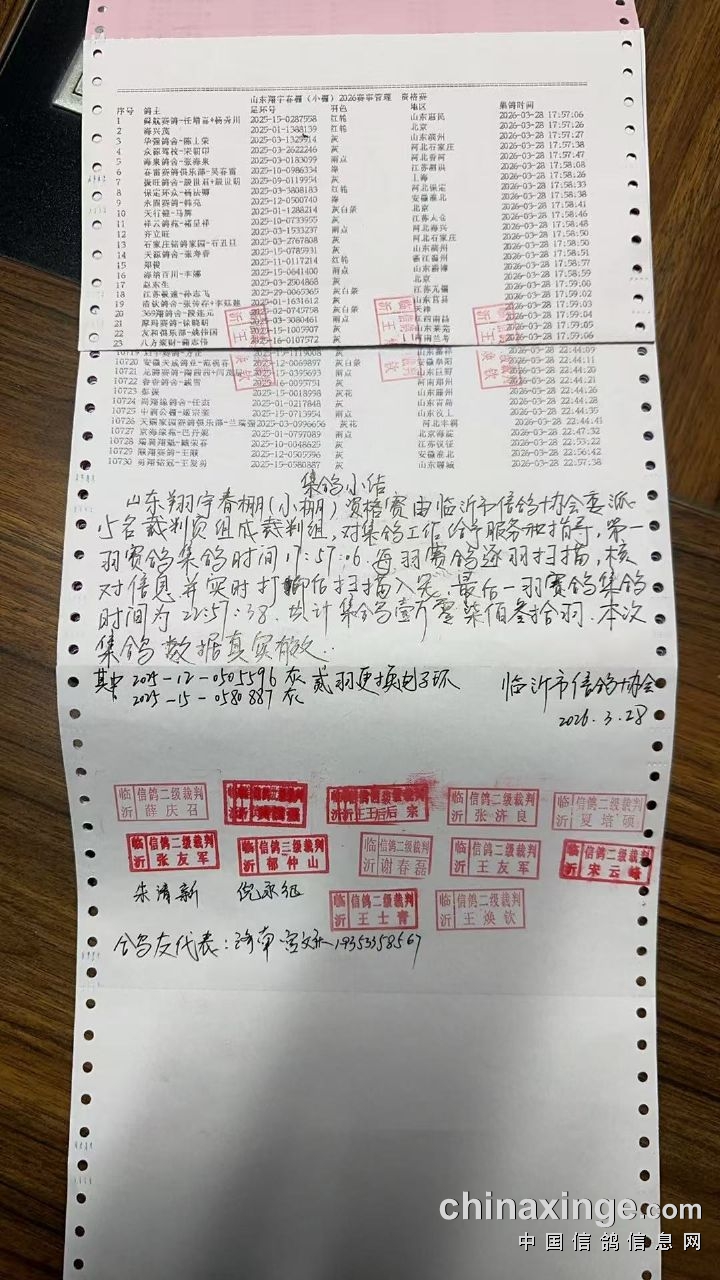 山东翔宇春棚（小棚）2026赛事管理 资格赛
序号 鸽主 足环号 羽色 地区 集鸽时间
1 2025-15-0287558 红轮 山东惠民 2026-03-28 17:57:06
2 海兴茂 2025-01-1388139 红轮 北京 2026-03-28 17:57:26
3 华强鸽舍-陈士荣 灰 山东滨州 2026-03-28 17:57:27
4 2025-03-2622246 灰 河北石家庄 2026-03-28 17:57:38
5 海泉鸽舍-张海泉 2025-03-0183099 雨点 河北香河 2026-03-28 17:57:47
6 春雷赛鸽俱乐部-吴春雷 2025-10-0986334 绛 2026-03-28 17:58:08
7 2025-09-0119954 灰 上海 2026-03-28 17:58:26
8 2025-03-3808183 红轮 河北保定 2026-03-28 17:58:33
9 2025-12-0500740 绛 安徽淮北 2026-03-28 17:58:38
10 天行健-马辉 2025-01-1288214 灰白条 北京 2026-03-28 17:58:41
11 2025-10-0733955 灰 江苏太仓 2026-03-28 17:58:46
12 齐立旺 2025-03-1533237 雨点 河北海兴 2026-03-28 17:58:48
13 石家庄铭鸽家园-石丑旦 2025-03-2767808 灰 河北石家庄 2026-03-28 17:58:50
14 天禄鸽舍-张寿春 2025-15-0785931 灰 山东滨州 2026-03-28 17:58:50
15 郑俊 2025-11-0117214 红轮 浙江温州 2026-03-28 17:58:51
16 海纳百川-李娜 2025-15-0641400 雨点 2026-03-28 17:58:57
17 赵东生 2025-03-2504868 灰 北京 2026-03-28 17:58:59
18 江苏极速-孙志飞 2025-29-0065365 灰白条 江苏无锡 2026-03-28 17:59:00
19 2025-01-1631612 灰 山东莒县 2026-03-28 17:59:02
20 369翔鸽舍-段连元 2025-02-0745758 灰白条 天津 2026-03-28 17:59:03
21 厚玛赛鸽-徐晓明 2025-03-3080461 雨点 江西南昌 2026-03-28 17:59:03
22 友和俱乐部-姚伟国 2025-15-1005907 灰 山东莱芜 2026-03-28 17:59:04
23 八方聚财-商志伟 2025-16-0107572 灰 河南兰考 2026-03-28
10719 2025-15-1119008 灰 山东嘉祥 2026-03-28 22:44:09
10720 2025-12-0069897 灰白条 安徽阜阳 2026-03-28 22:44:11
10721 2025-15-0395693 雨点 山东巨野 2026-03-28 22:44:11
10722 春春鸽舍-臧雪 2025-16-0095751 灰 河南郑州 2026-03-28 22:44:20
10723 2025-15-0018998 灰花 山东滕州 2026-03-28 22:44:26
10724 2025-01-0217848 灰 山东青岛 2026-03-28 22:44:28
10725 2025-15-0713954 雨点 山东汶上 2026-03-28 22:44:35
10726 天赐家园赛鸽俱乐部-兰瑞强 2025-03-0996656 灰花 河北丰润 2026-03-28 22:44:41
10727 2025-01-0797089 雨点 北京海淀 2026-03-28 22:47:32
10728 2025-10-0048625 灰 江苏仪征 2026-03-28 22:53:22
10729 顺翔赛鸽-王顺 2025-12-0505596 灰 安徽淮北 2026-03-28 22:56:42
10730 2025-15-0580887 灰 山东聊城 2026-03-28 22:57:38
集鸽小结
山东翔宇春棚(小棚)资格赛由临沂市信鸽协会委派
15名裁判员组成裁判组,对集鸽工作给予服务和指导,第一
羽赛鸽集鸽时间17:57:06,每羽赛鸽逐羽扫描,核
对信息并实时打印后扫描入笼,最后一羽赛鸽集鸽
时间为22:57:38,共计集鸽壹万零柒佰叁拾羽.本次
集鸽数据真实有效.
其中 2025-12-0505596 灰 贰羽更换电子环 临沂市信鸽协会
2025-15-0580887 灰
2026.3.28
临沂 信鸽二级裁判 薛庆召
临沂 信鸽二级裁判 张济良
临沂 信鸽二级裁判 夏培硕
临沂 信鸽二级裁判 张友军
临沂 信鸽三级裁判 郁仲山
临沂 信鸽二级裁判 谢春磊
临沂 信鸽二级裁判 王友军
临沂 信鸽二级裁判 宋云峰
朱清新 倪承征
临沂 信鸽二级裁判 王士青
临沂 信鸽二级裁判 王焕钦
鸽友代表: 济南 19353358567
chinaxinge.com
中国信鸽信息网